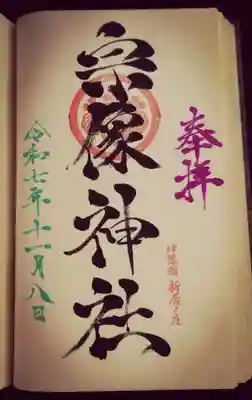 奉拝
伊勢国 新居ノ庄
宗像神社
令和七年十一月八日